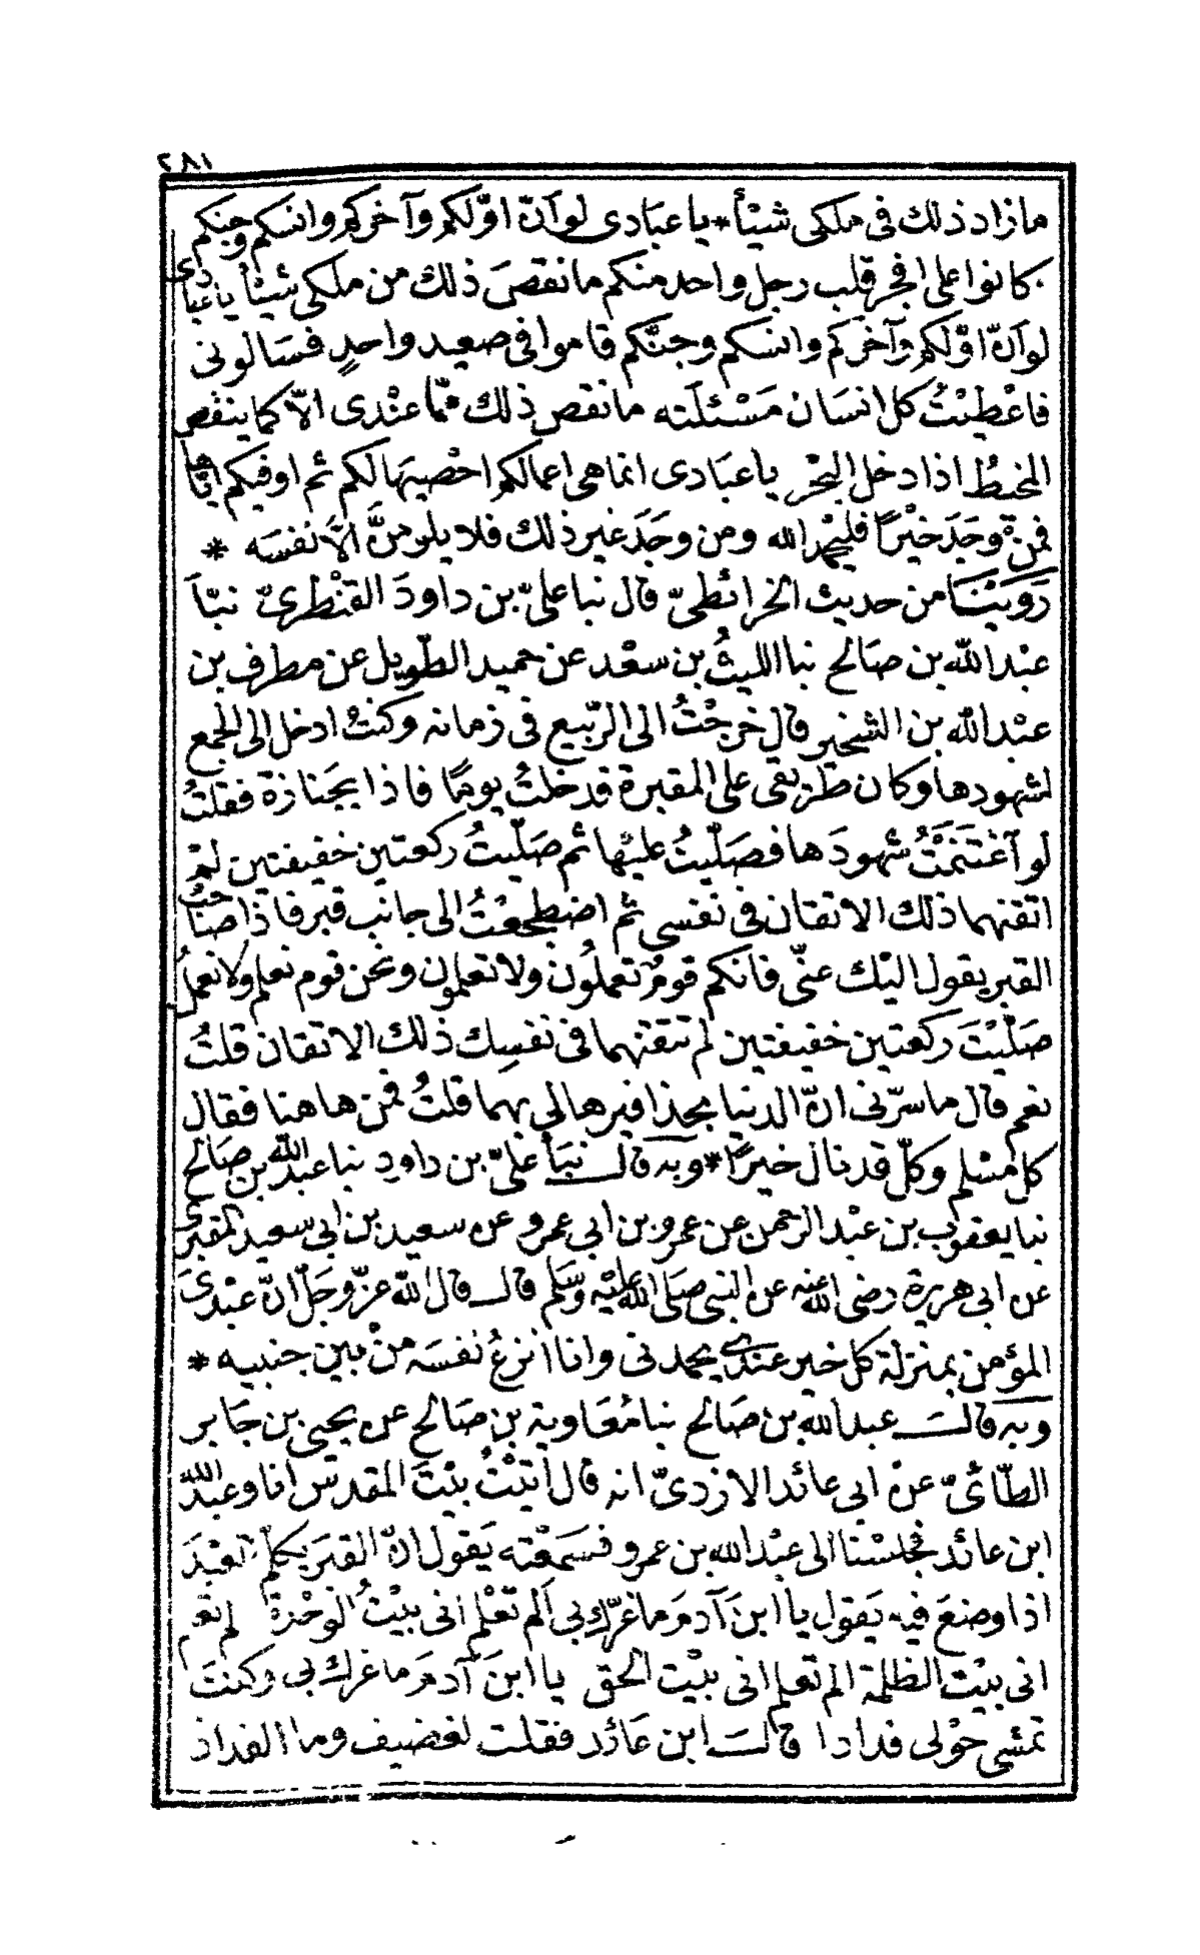 ٢٨١
ما زاد ذلك فى ملكى شيئأ * يا عبادى لو آنّ اوّلكم وآخركم وانسكم وجنكم
كانوا على افجر قلب رجل واحد منكم ما نقصَ ذلك من ملكى شيئأ يا عبادى
لو آنّ اوّلكم وآخركم وانسكم وجنّكم قاموا فى صعيد واحدٍ فسَالونى
فاعْطيْتُ كل انسَان مَسْئلَته ما نقص ذلك ممّا عنْدى الاّ كما ينقص
المخيْطُ اذا دخل البَحْر يا عبَادى انما هى اعمالكم احْصيهَا لكم ثم اوفيكم ايّاها
فمن وَجَدَ خيْرًا فليحمد الله ومن وجَدَ غير ذلك فلا يلومنَّ الاَّ نفسَه *
رَوَيْنَا من حديث الخرائطىّ قال نبا علىّ بن داودَ القنْطرىّ نبّا
عبْد الله بن صَالح نبا الليثُ بن سعْد عن حميد الطّويل عن مطرف بن
عبْد الله بن الشخير قال خرجْتُ الى الرّبيع فى زمانه وكنتُ ادخل الى الجمع
لشهودها وكان طريقى على المقبرة فدخلتُ يومًا فاذا بجَنازة فقلتُ
لو آغتَنَمْتُ شهودَها فصَلّيتُ عليْها ثم صَلّيتُ ركعتين خفيفتين لمْ
اتقنهما ذلك الاتقان فى نفسى ثم اضطجعْتُ الى جانب قبر فاذا صَاحبُ
القبر يقول اليْك عنّى فانكم قومٌ تعملُون ولا تعلمون ونحن قوم نعلم ولا نعملُ
صَلّيْتَ ركعتين خفيفتين لم تتقنهما فى نفسِك ذلك الاتقان قلتُ
نعم قال ما سرّنى انّ الدنيا بحذافيرها لى بهما قلتُ فمن هاهنا فقال
كل مسْلم وكلّ قد نال خيرًا * وبه قالـــ نبَأ علىّ بن داودِ نبا عبد الله بن صَالح
نبا يعقوب بن عبْد الرحمن عن عمرو بن ابى عمرو عن سعيد بن ابى سعيد المقبرى
عن ابى هريرة رضى الله عنه عن النبى صَلى الله عليْه وسَلم قالـــ قال الله عزّ وجَلّ انّ عبْدىَ
المؤمن بمنزلة كل خير عندى يحمدنى وانا انزعُ نفسَه منْ بين جنبيه *
وبه قالـــ عبد الله بن صَالح نبا مُعَاوية بن صَالح عن يحيى بن جَابر
الطّائىّ عنْ ابى عائد الازدىّ انه قال اتيْتُ بيْتَ المقدس انا وعبْد الله
ابن عائد فجلسْنا الى عبْد الله بن عمرو فسَمعْته يَقول انّ القبر يكلّم العبْدَ
اذا وضعَ فيه يَقول يا ابنَ آدمَ ما غرّك بى الم تعْلم انى بيْتُ الوحْدة الم تعم
انى بيْت الظلمة الم تعلم انى بيْت الحق يا ابنَ آدمَ ما غرك بى وكنتَ
تمشى حوْلى فدادا قالــَ ابن عَائد فقلت لغضيف وما الفداذ